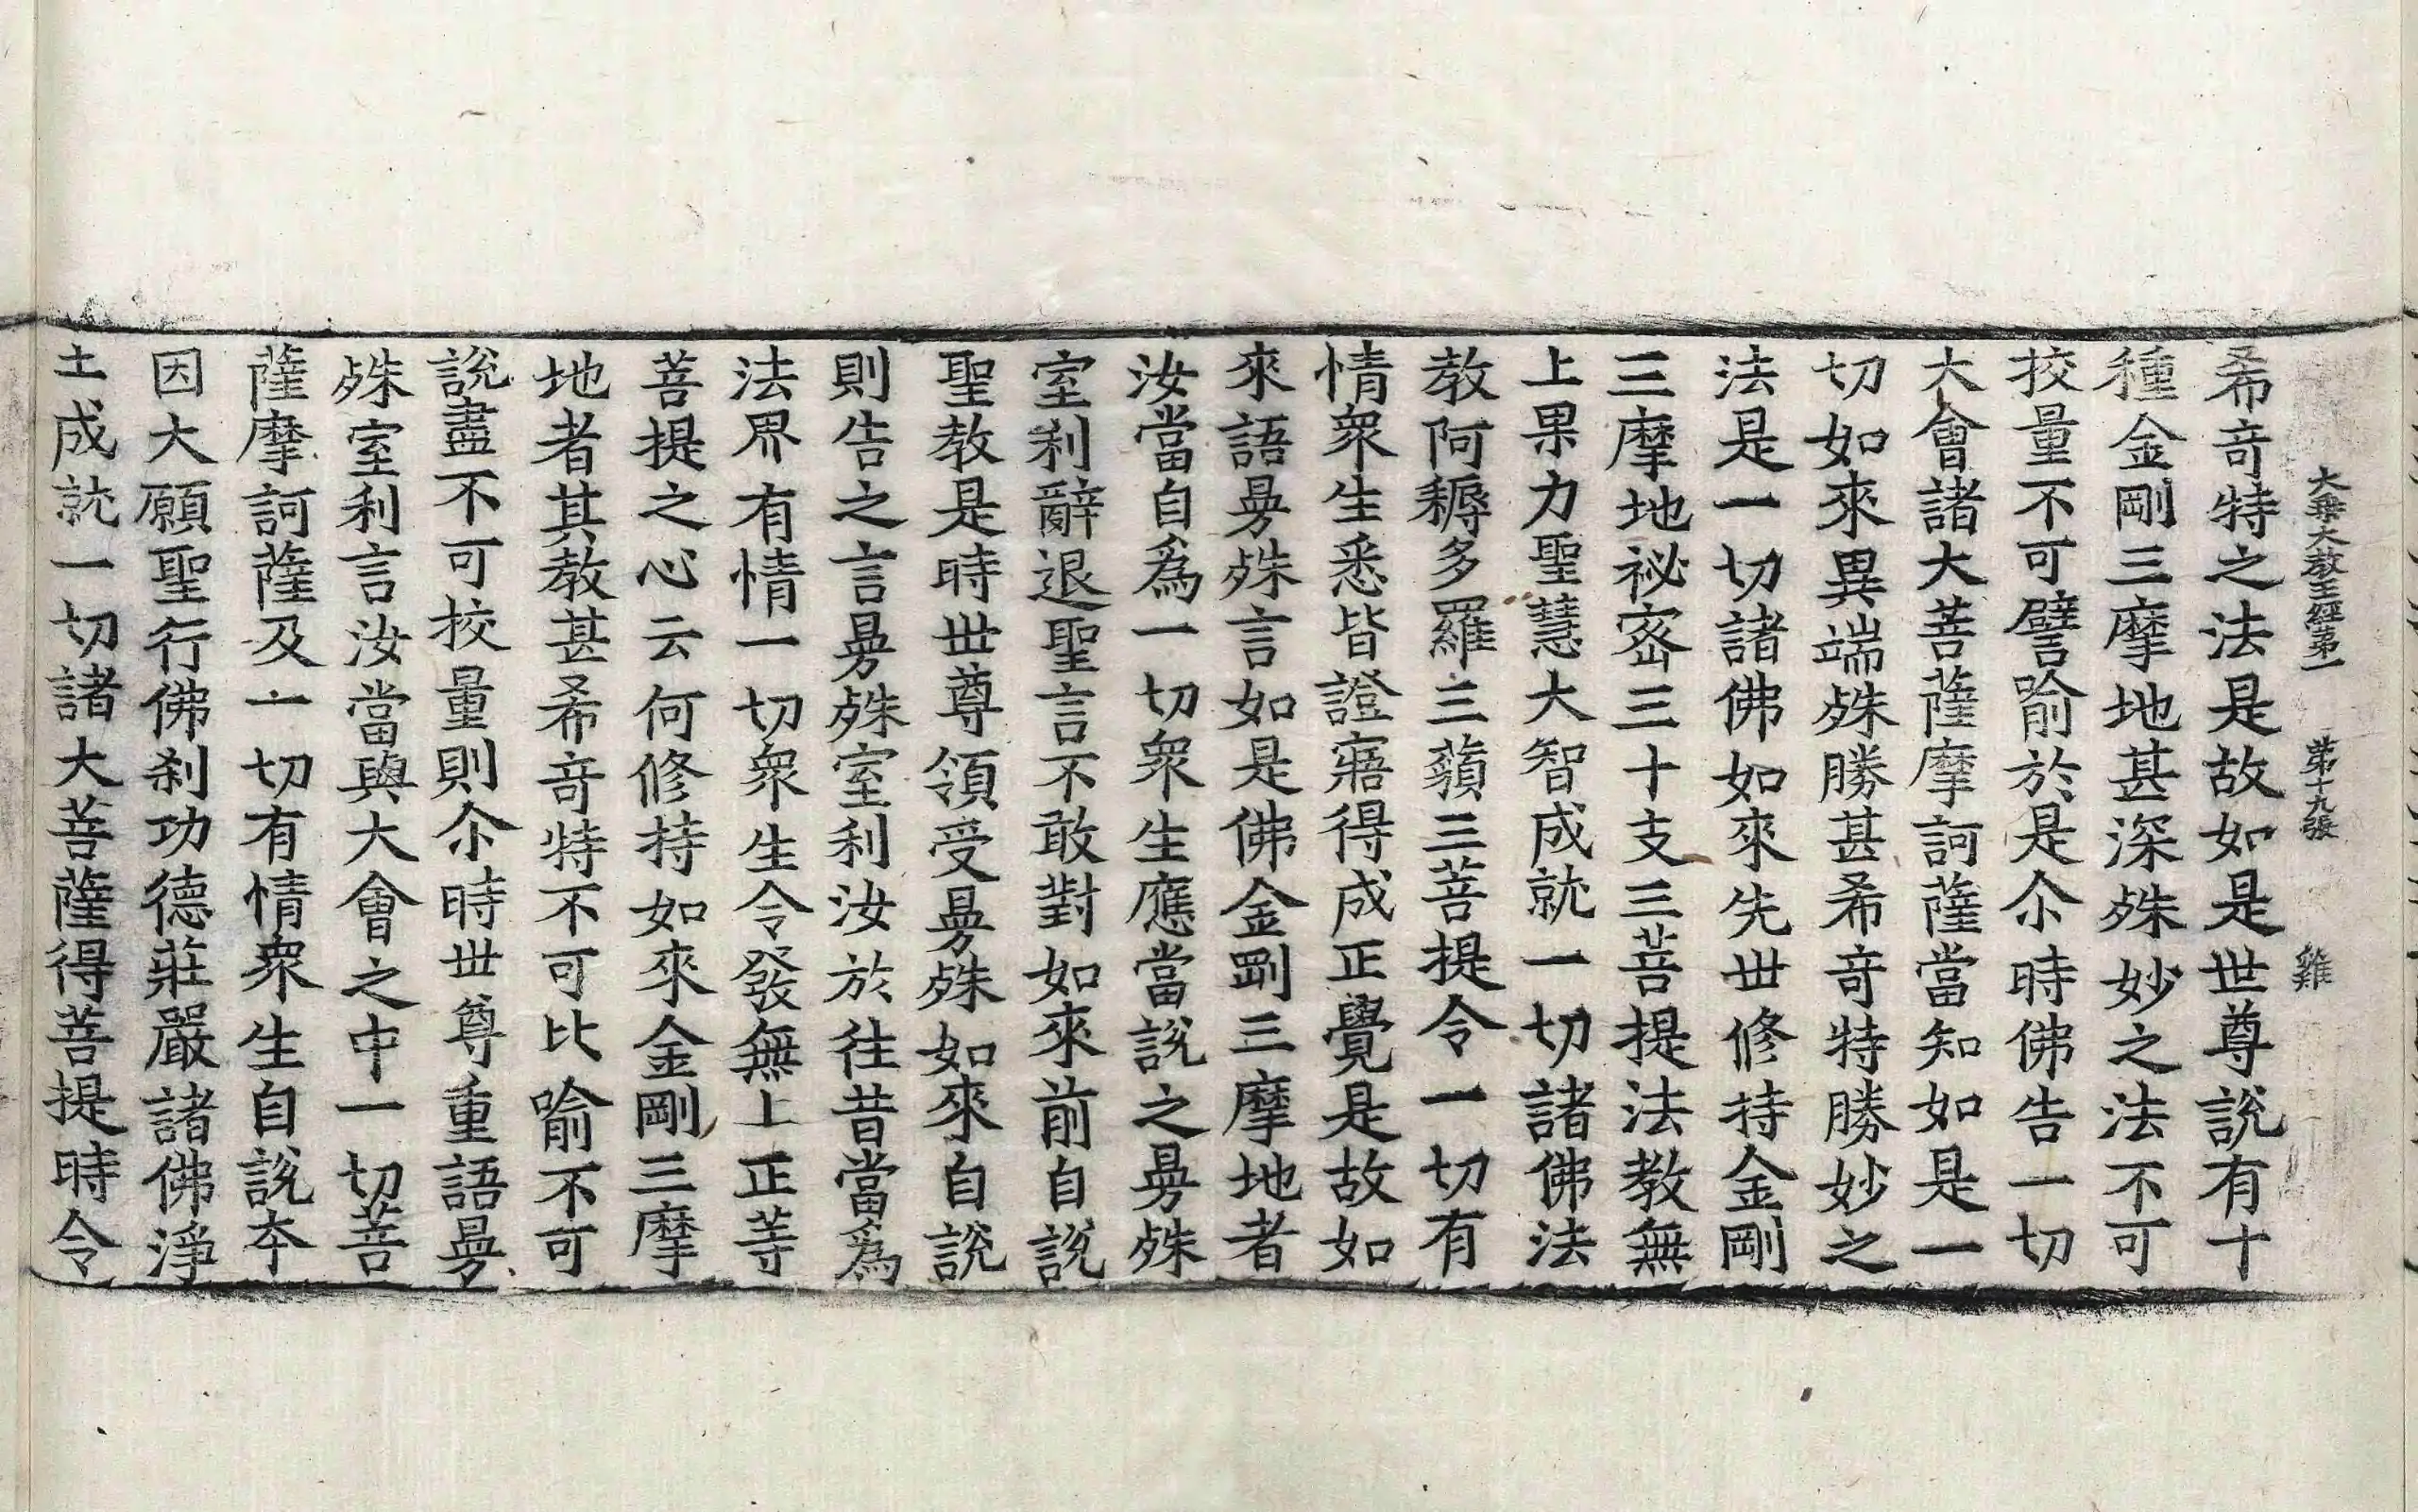 大乘大教王經第一 第十九張 雞
希奇特之法是故如是世尊說有十
種金剛三摩地甚深殊妙之法不可
挍量不可譬喻於是尒時佛告一切
大會諸大菩薩摩訶薩當知如是一
切如來異端殊勝甚希奇特勝妙之
法是一切諸佛如來先世修持金剛
三摩地祕密三十支三菩提法教無
上果力聖慧大智成就一切諸佛法
教阿耨多羅三藐三菩提令一切有
情衆生悉皆證寤得成正覺是故如
來語曼殊言如是佛金剛三摩地者
汝當自爲一切衆生應當說之曼殊
室利辭退聖言不敢對如來前自說
聖教是時世尊領受曼殊如來自說
則告之言曼殊室利汝於往昔當爲
法界有情一切衆生令發無上正等
菩提之心云何修持如來金剛三摩
地者其教甚希奇特不可比喻不可
說盡不可挍量則尒時世尊重語曼
殊室利言汝當與大會之中一切菩
薩摩訶薩及一切有情衆生自說本
因大願聖行佛刹功德莊嚴諸佛淨
土成就一切諸大菩薩得菩提時令